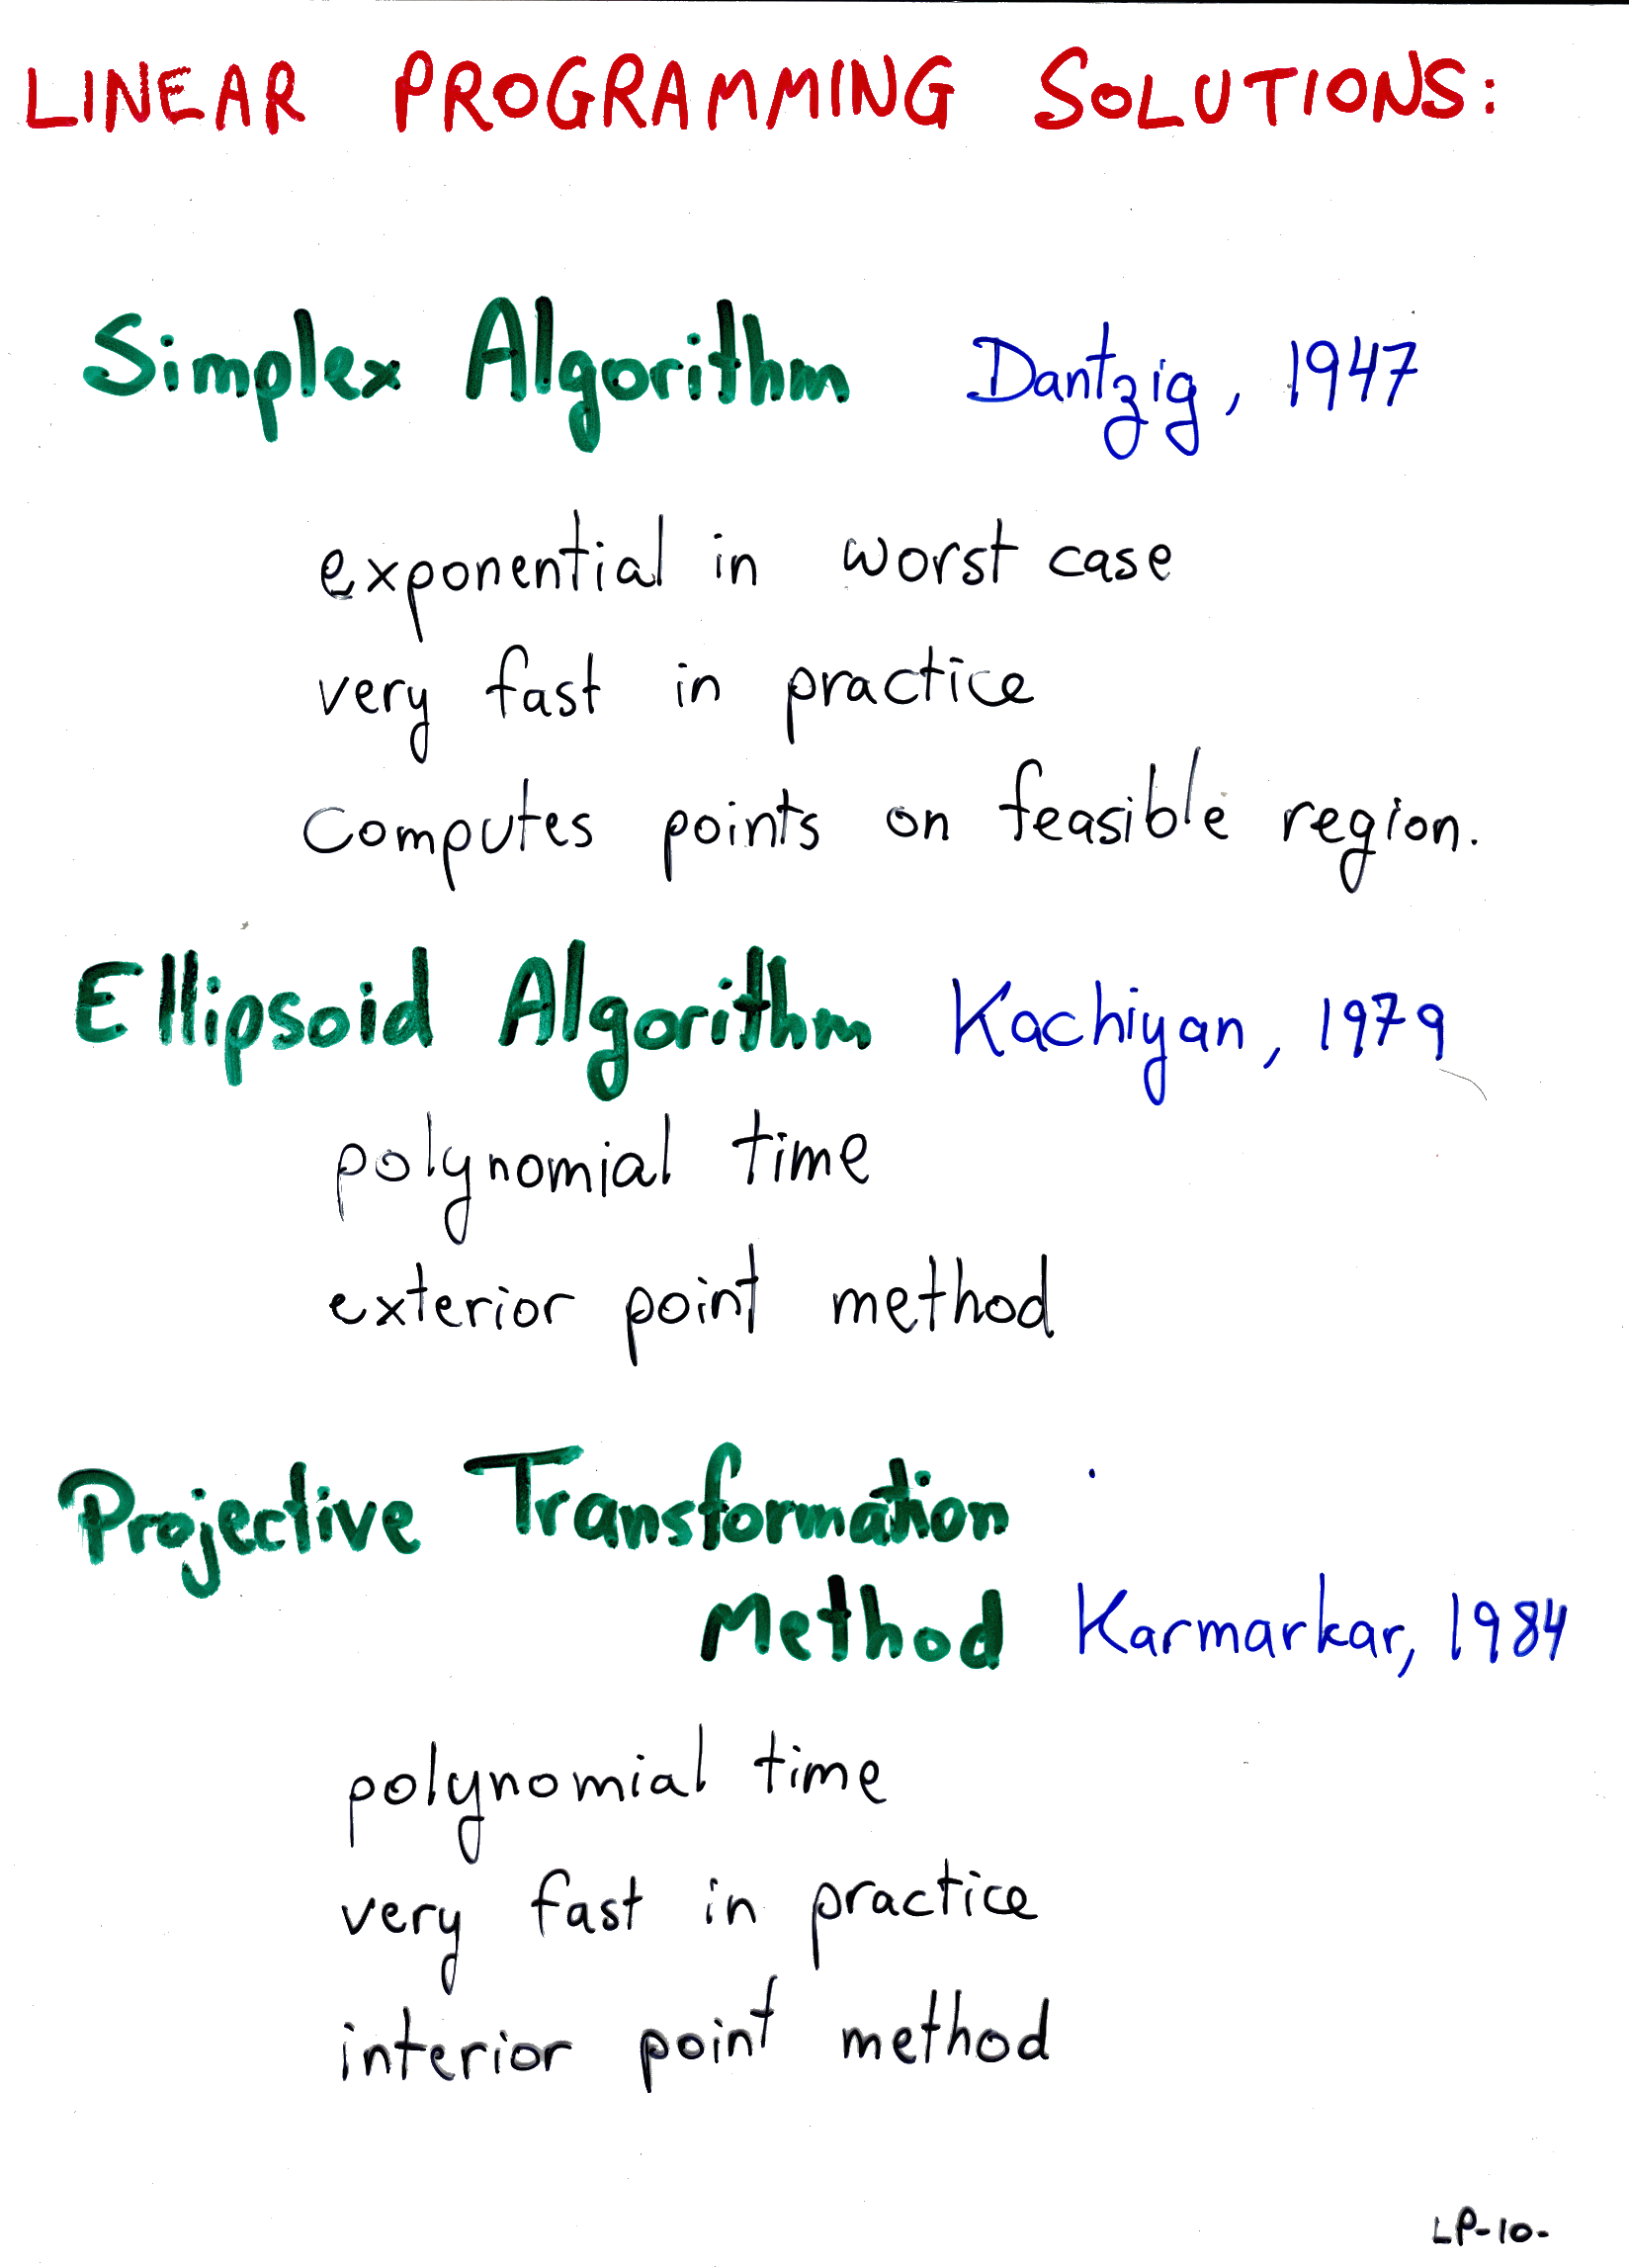 LINEAR PROGRAMMING SOLUTIONS:
Simplex Algorithm Dantzig, 1947
exponential in worst case
very fast in practice
computes points on feasible region.
Ellipsoid Algorithm Kachiyan, 1979
polynomial time
exterior point method
Projective Transformation
Method Karmarkar, 1984
polynomial time
very fast in practice
interior point method
LP-10-